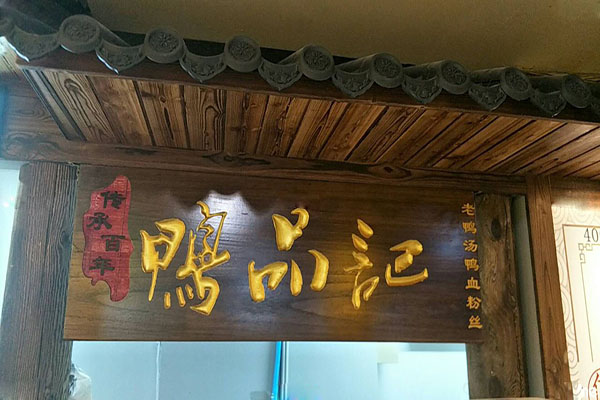 传承百年
鸭品記
老鸭汤鸭血粉丝
40